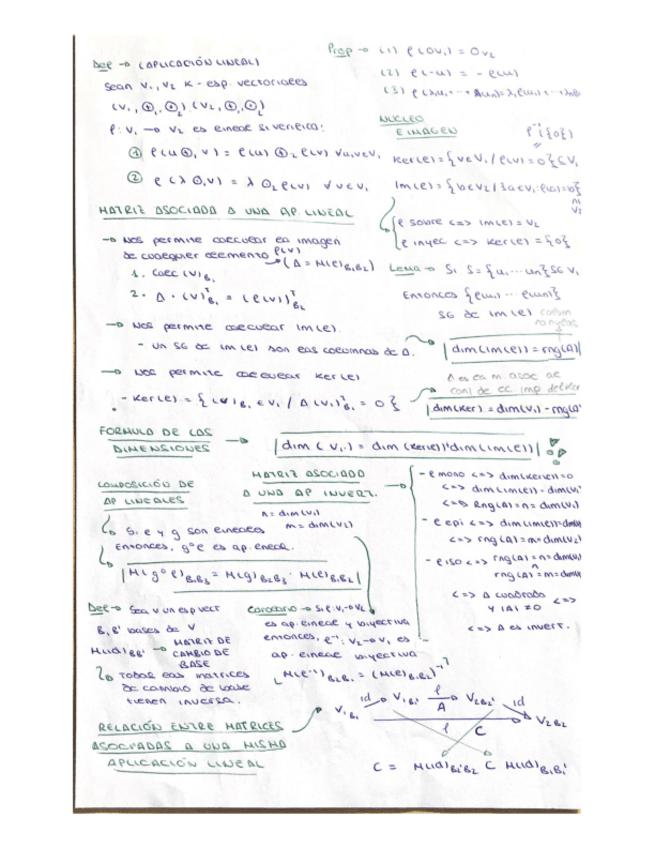 Def → (APLICACIÓN LINEAL)
Sean V₁, V₂ K-esp. vectoriales
(V₁, ⊕₁, ⊙₁) (V₂, ⊕₂, ⊙₂)
f: V₁ → V₂ es lineal si verifica:
① f(u ⊕₁ v) = f(u) ⊕₂ f(v) ∀u,v∈V₁
② f(λ ⊙₁ v) = λ ⊙₂ f(v) ∀v∈V₁
Prop → (1) f(0v₁) = 0v₂
(2) f(-u) = -f(u)
NÚCLEO
E IMAGEN
f⁻¹({0})
Ker(f) = {v∈V₁ / f(v) = 0} ≤ V₁
Im(f) = {b∈V₂ / ∃a∈V₁ : f(a) = b}
V₂
f sobre <=> Im(f) = V₂
f inyec <=> Ker(f) = {0}
MATRIZ ASOCIADA A UNA AP. LINEAL
→ Nos permite calcular la imagen
de cualquier elemento f(v)
(A = M(f)B₁B₂)
1. Calc (v)B₁
2. A · (v)ᵀB₁ = (f(v))ᵀB₂
→ Nos permite calcular Im(f).
- Un SG de Im(f) son las columnas de A.
→ Nos permite calcular Ker(f)
- Ker(f) = {(v)B₁ ∈ V₁ / A(v)ᵀB₁ = 0}
Lema → Si S = {u₁ ... un} SG V₁
Entonces {f(u₁) ... f(un)}
SG de Im(f)
dim(Im(f)) = rng(A)
A es la m. asoc al
conj de ec imp del Ker
dim(Ker) = dim(V₁) - rng(A)
FORMULA DE LAS
DIMENSIONES → dim(V₁) = dim(Ker(f)) + dim(Im(f)) !
COMPOSICIÓN DE
AP LINEALES
Si f y g son lineales
Entonces, g∘f es ap. lineal.
n = dim(V₁)
m = dim(V₂)
M(g∘f)B₁B₃ = M(g)B₂B₃ · M(f)B₁B₂
MATRIZ ASOCIADA
A UNA AP INVERT. →
- f mono <=> dim(Ker(f)) = 0
<=> dim(Im(f)) = dim(V₁
<=> Rng(A) = n = dim(V₁)
- f epi <=> dim(Im(f)) = dim(V
<=> rng(A) = m = dim(V₂)
- f iso <=> rng(A) = n = dim(V₁)
rng(A) = m = dim(V
<=> A cuadrada
y |A| ≠ 0 <=>
<=> A es invert.
Def → Sea V un esp vect
B, B' bases de V
M(id)BB' → MATRIZ DE
CAMBIO DE
BASE
Todas las matrices
de cambio de base
tienen inversa.
Corolario → Si f: V₁→V₂
es ap. lineal y biyectiva
entonces, f⁻¹: V₂→V₁ es
ap. lineal biyectiva
M(f⁻¹)B₂B₁ = (M(f)B₁B₂)⁻¹
RELACIÓN ENTRE MATRICES
ASOCIADAS A UNA MISMA
APLICACIÓN LINEAL
id V₁B₁' f V₂B₂' id
V₁B₁ A V₂B₂
f C
C = M(id)B₂'B₂ C M(id)B₁B₁'